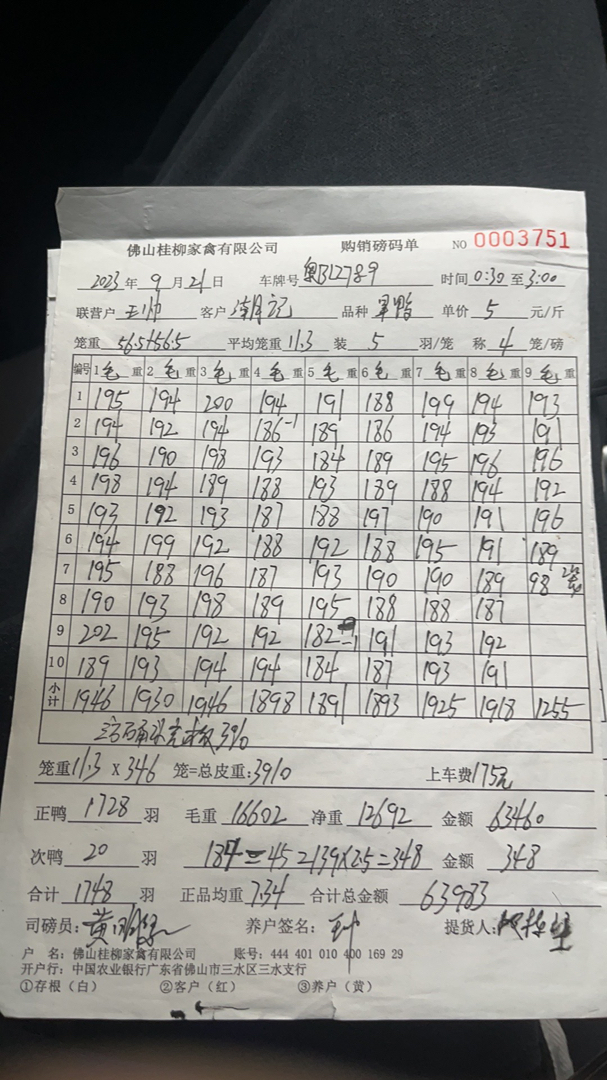 佛山桂柳家禽有限公司 购销磅码单 NO 0003751
2023 年 9 月 21 日 车牌号 粤B12789 时间 0:30 至 3:00
联营户 王帅 客户 潮记 品种 单价 5 元/斤
笼重 56.5+56.5 平均笼重 11.3 装 5 羽/笼 称 4 笼/磅
编号 1 毛 重 2 毛 重 3 毛 重 4 毛 重 5 毛 重 6 毛 重 7 毛 重 8 毛 重 9 毛 重
1 195 194 200 194 191 188 199 194 193
2 194 192 194 186-1 189 186 194 193 191
3 196 190 198 193 184 189 195 196 196
4 198 194 189 188 193 189 188 194 192
5 193 192 193 187 188 197 190 191 196
6 194 199 192 188 192 188 195 191 189
7 195 188 196 187 193 190 190 189 98 2笼
8 190 193 198 189 195 188 188 187
9 202 195 192 192 182-1 191 193 192
10 189 193 194 194 184 187 193 191
小计 1946 1930 1946 1898 1891 1893 1925 1918 1255
笼重 11.3 X 346 笼=总皮重: 3910 上车费 175元
正鸭 1728 羽 毛重 16602 净重 12692 金额 63460
次鸭 20 羽 184-45=139×2.5=348 金额 348
合计 1748 羽 正品均重 7.34 合计总金额 63983
司磅员: 养户签名: 提货人:
户 名: 佛山桂柳家禽有限公司 账号: 444 401 010 400 169 29
开户行: 中国农业银行广东省佛山市三水区三水支行
①存根（白） ②客户（红） ③养户（黄）